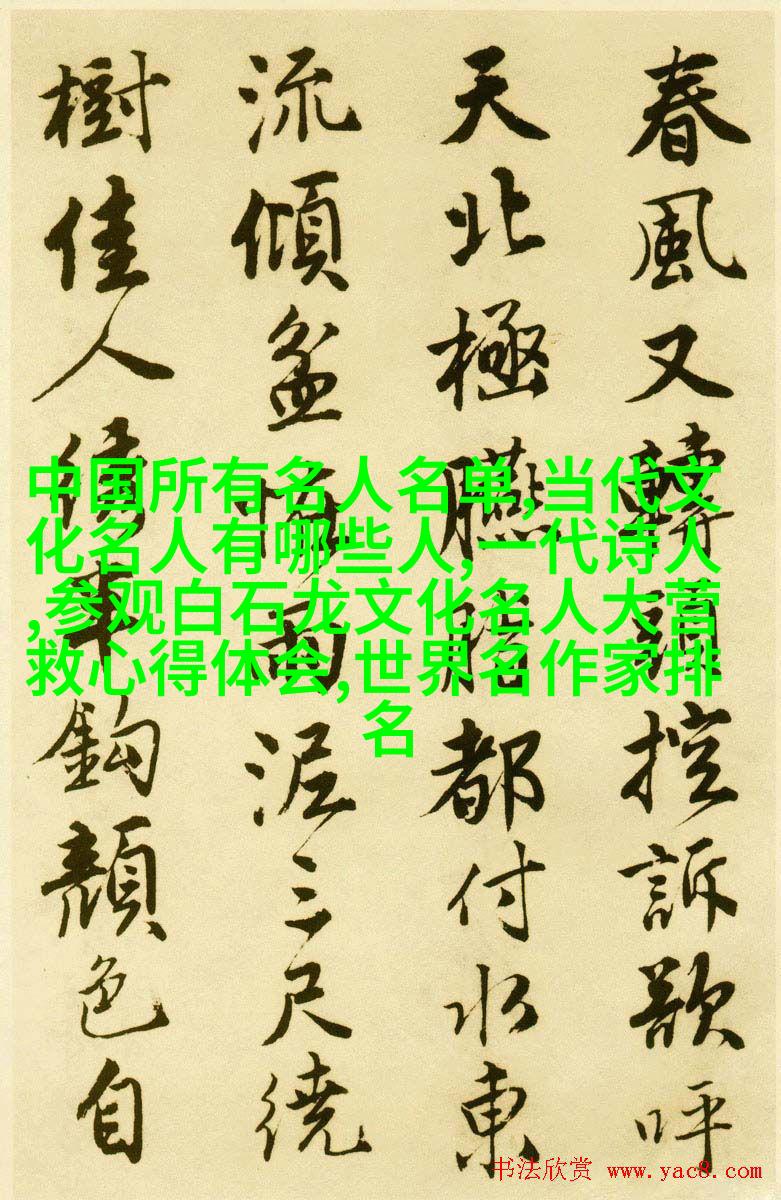 春風又轉頭控訴歌呼
天北極臙脂都付水東
流傾盆雨泥三尺繞
樹佳人繡半鈎顏色自
中国所有名人名单,当代文
化名人有哪些人,一代诗人
,参观白石龙文化名人大营
救心得体会,世界名作家排
名
书法欣赏 www.yac8.com